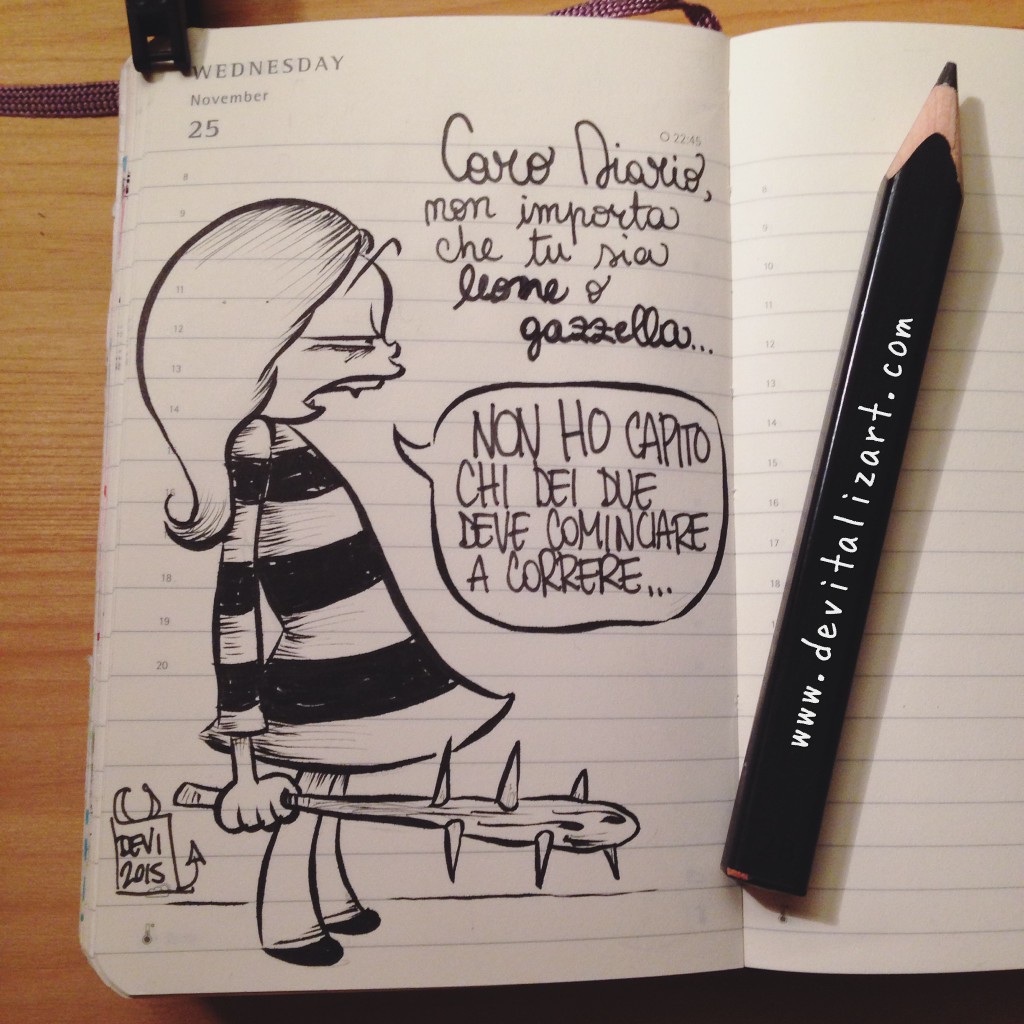 WEDNESDAY
November
25
22:45
Caro Diario,
non importa
che tu sia
leone o
gazzella...
NON HO CAPITO
CHI DEI DUE
DEVE COMINCIARE
A CORRERE...
8
9
11
12
13
14
18
19
20
DEVI
2015
8
9
10
11
12
13
14
15
16
17
18
www.devitalizart.com